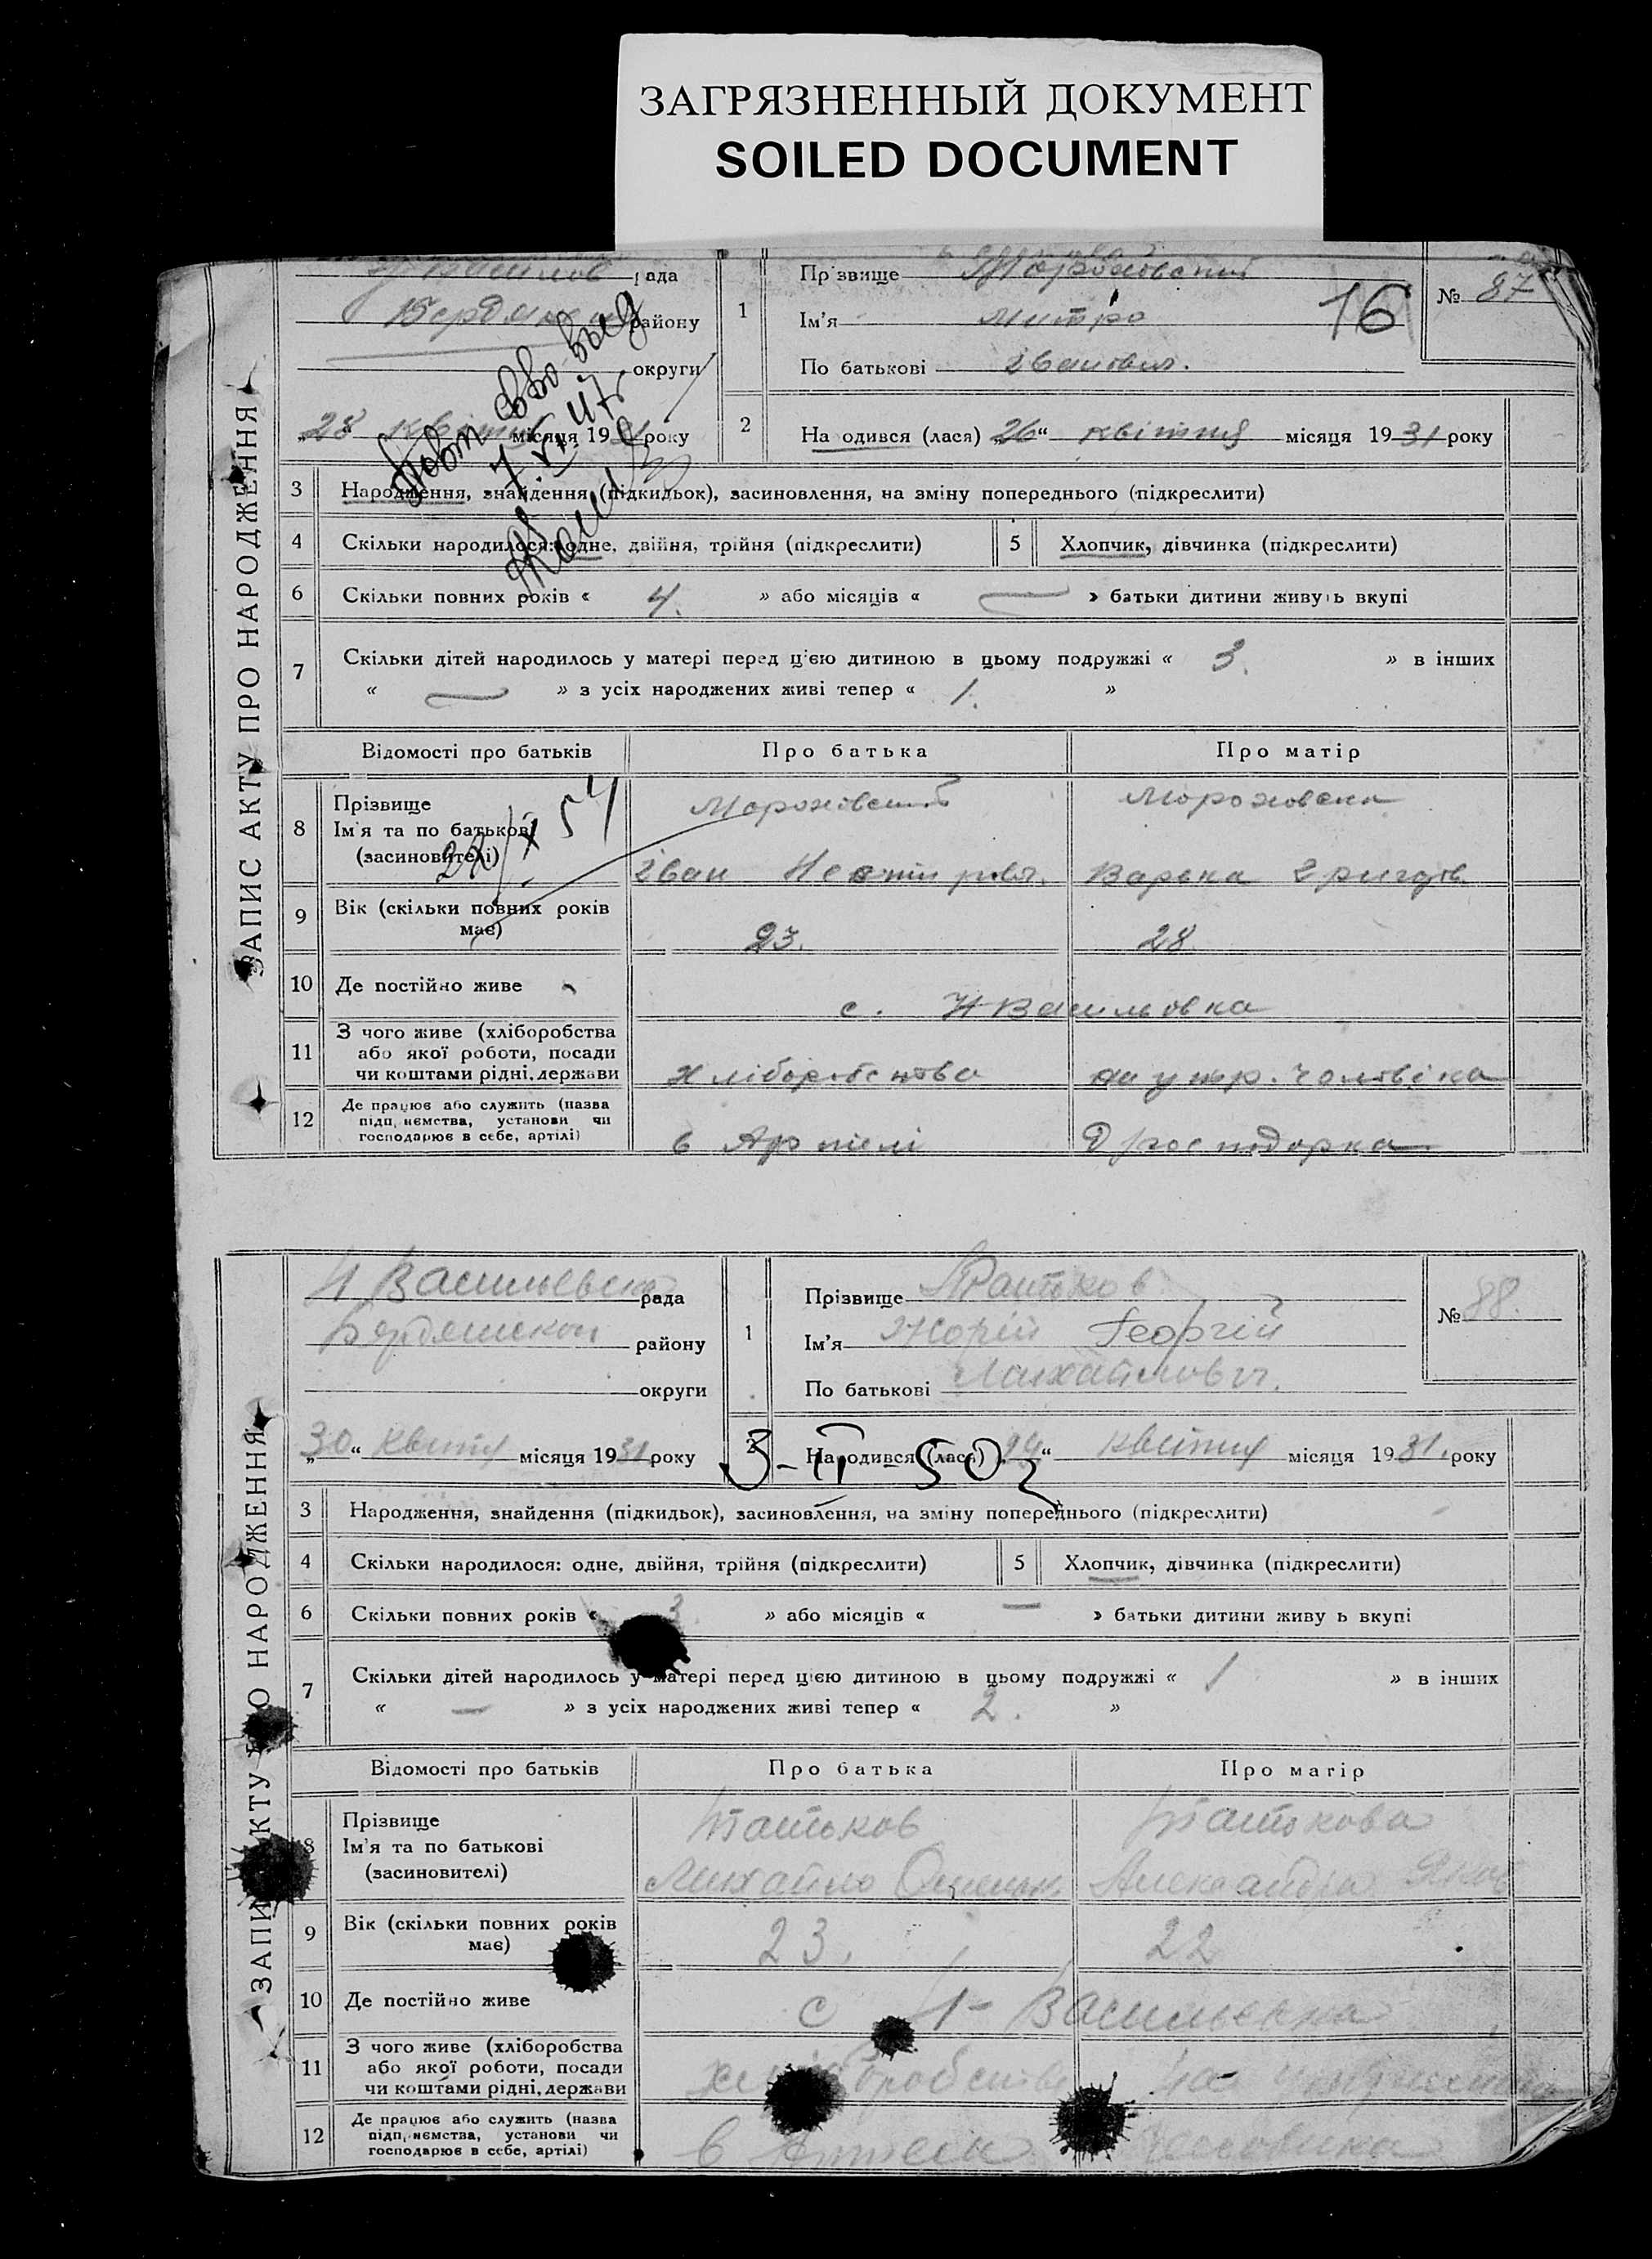 ЗАГРЯЗНЕННЫЙ ДОКУМЕНТ
SOILED DOCUMENT
ЗАПИС АКТУ ПРО НАРОДЖЕННЯ
рада
району
округи
„28 квітня місяця 1931 року
1
Прізвище
Ім'я Митро
По батькові Іванович.
16
№ 87
2
Народився (лася) „26“ квітня місяця 1931 року
Повт. свво выд
7 VII 47
3 Народження, знайдення (підкидьок), засиновлення, на зміну попереднього (підкреслити)
4 Скільки народилося: одне, двійня, трійня (підкреслити) 5 Хлопчик, дівчинка (підкреслити)
6 Скільки повних років « 4. » або місяців « — » батьки дитини живуть вкупі
7 Скільки дітей народилось у матері перед цією дитиною в цьому подружжі « 3. » в інших
« — » з усіх народжених живі тепер « 1. »
Відомості про батьків Про батька Про матір
8 Прізвище
Ім'я та по батькові
(засиновителі)
Іван
Варька Григор.
9 Вік (скільки повних років має) 23. 28
10 Де постійно живе с. Н Васильовка
11 З чого живе (хліборобства
або якої роботи, посади
чи коштами рідні, держави
хліборобство на утр. чоловіка
12 Де працює або служить (назва
підприємства, установи чи
господарює в себе, артілі)
в Артілі Д/господарка
ЗАПИС АКТУ ПРО НАРОДЖЕННЯ
Н Васильевска рада
району
округи
„30“ квітня місяця 1931 року
1
Прізвище
Ім'я Юрій Георгій
По батькові Михайлович.
№ 88.
2
Народився (лася) 24“ квітня місяця 1931. року
3-II-50г
3 Народження, знайдення (підкидьок), засиновлення, на зміну попереднього (підкреслити)
4 Скільки народилося: одне, двійня, трійня (підкреслити) 5 Хлопчик, дівчинка (підкреслити)
6 Скільки повних років « 3 » або місяців « — » батьки дитини живу ь вкупі
7 Скільки дітей народилось у матері перед цією дитиною в цьому подружжі « 1 » в інших
« — » з усіх народжених живі тепер « 2. »
Відомості про батьків Про батька Про матір
8 Прізвище
Ім'я та по батькові
(засиновителі)
Михайло
Александра Яков
9 Вік (скільки повних років має) 23. 22
10 Де постійно живе с Н-Васильевка
11 З чого живе (хліборобства
або якої роботи, посади
чи коштами рідні, держави
хліборобство на
12 Де працює або служить (назва
підприємства, установи чи
господарює в себе, артілі)
в Артели чоловика